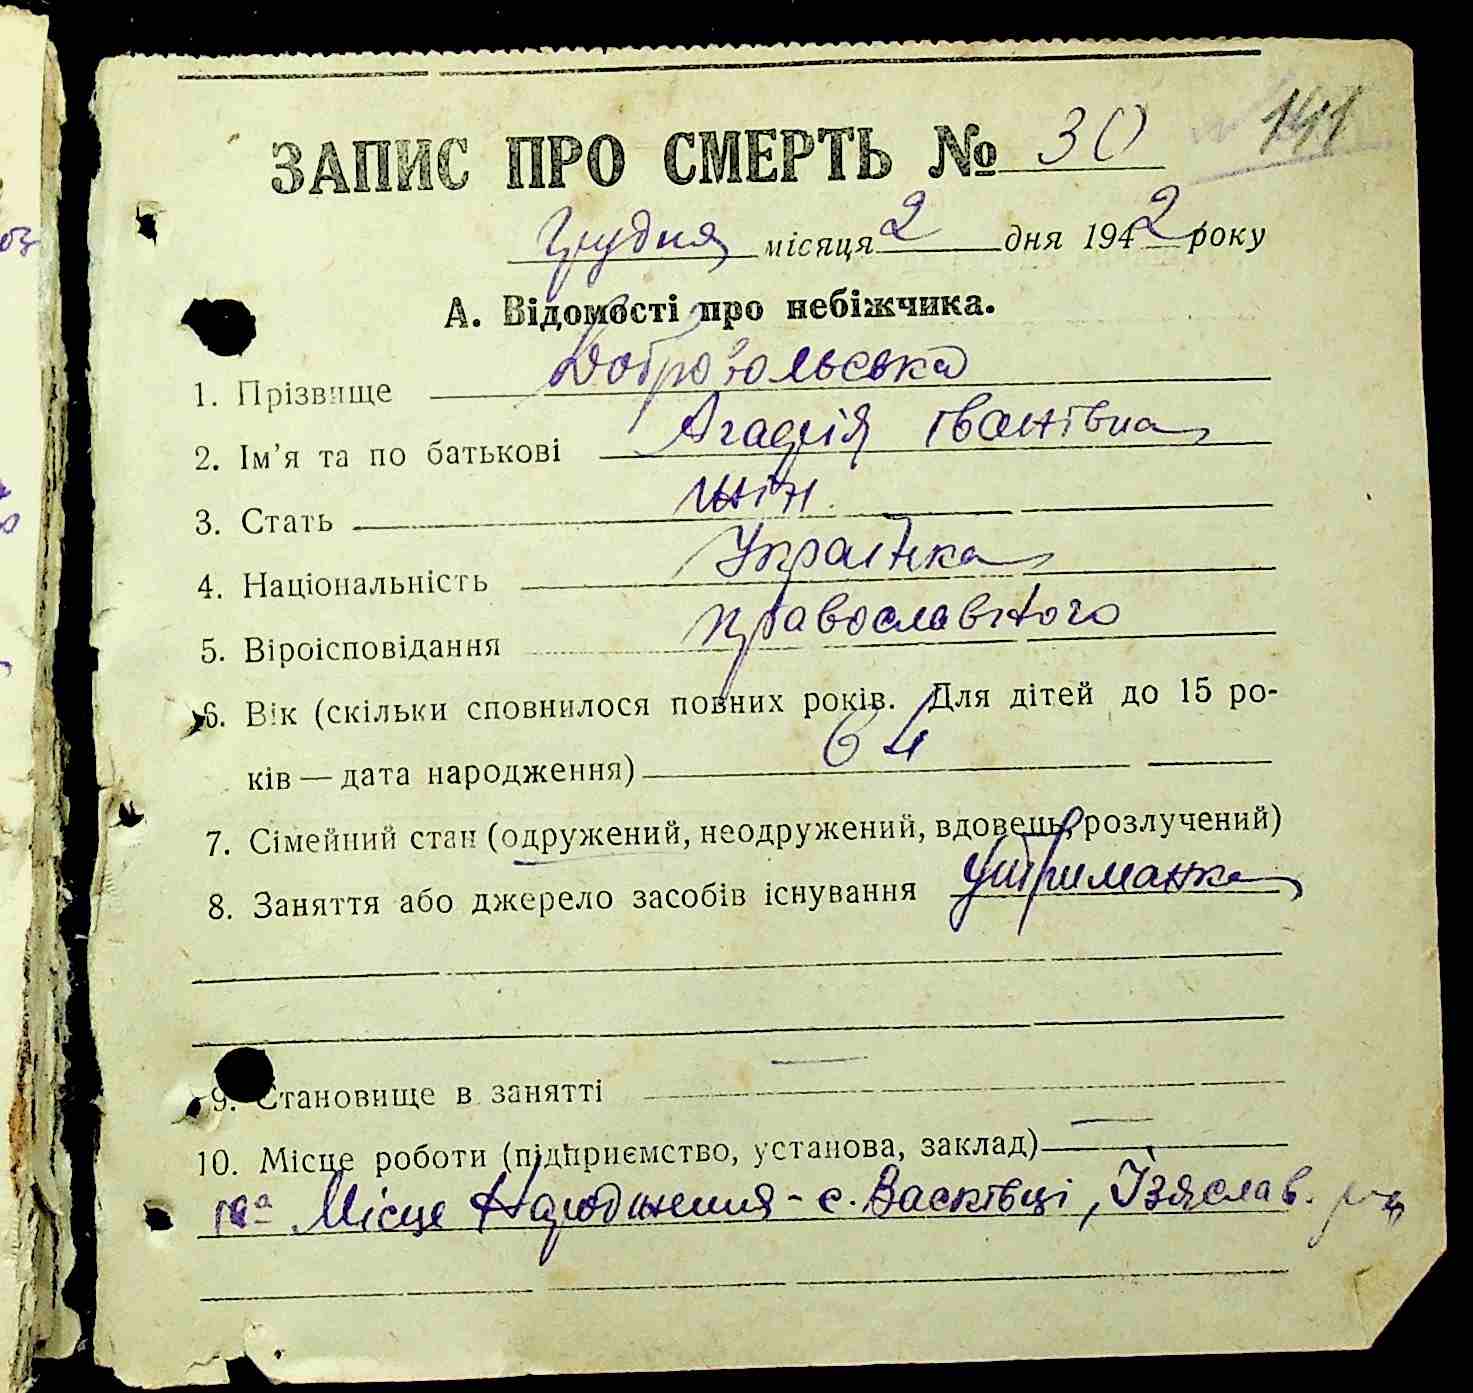 141
ЗАПИС ПРО СМЕРТЬ № 30
Грудня місяця 2 дня 1942 року
А. Відомості про небіжчика.
1. Прізвище Добровольська
2. Ім'я та по батькові Агафія Іванівна
3. Стать жін.
4. Національність Українка
5. Віроісповідання православного
6. Вік (скільки сповнилося повних років. Для дітей до 15 ро-
ків — дата народження) 64
7. Сімейний стан (одружений, неодружений, вдовець, розлучений)
8. Заняття або джерело засобів існування утриманка
9. Становище в занятті —
10. Місце роботи (підприємство, установа, заклад) —
10а Місце народження - с. Васківці, Ізяслав. р-н